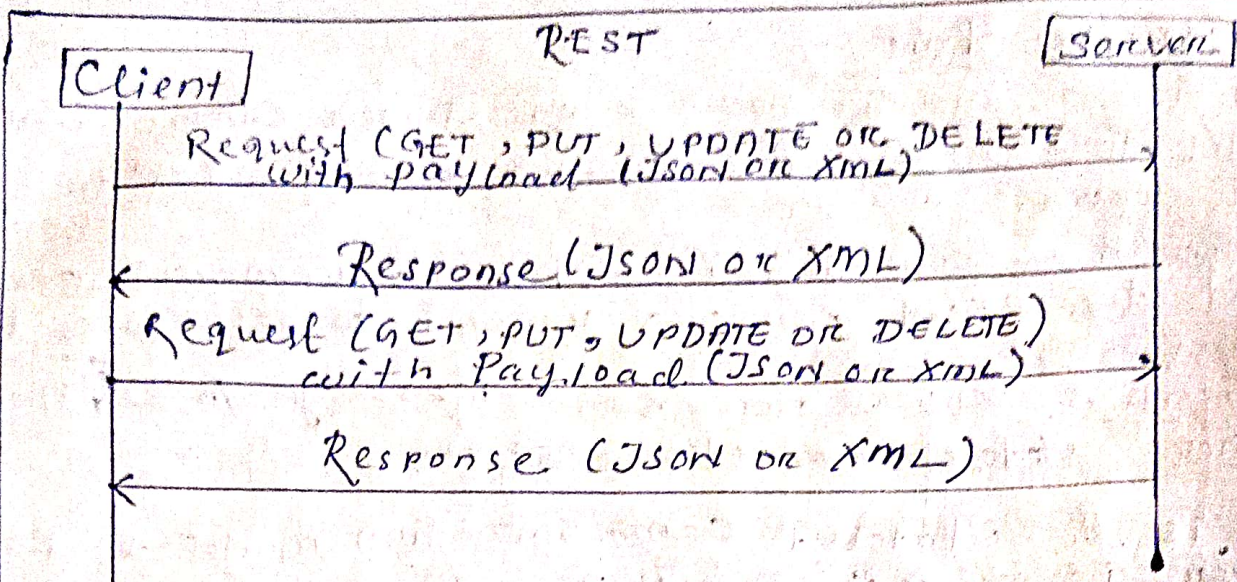 REST
Client
Server
Request (GET, PUT, UPDATE OR DELETE
with payload (Json or XML)
Response (Json or XML)
Request (GET, PUT, UPDATE OR DELETE)
with Payload (Json or XML)
Response (Json or XML)